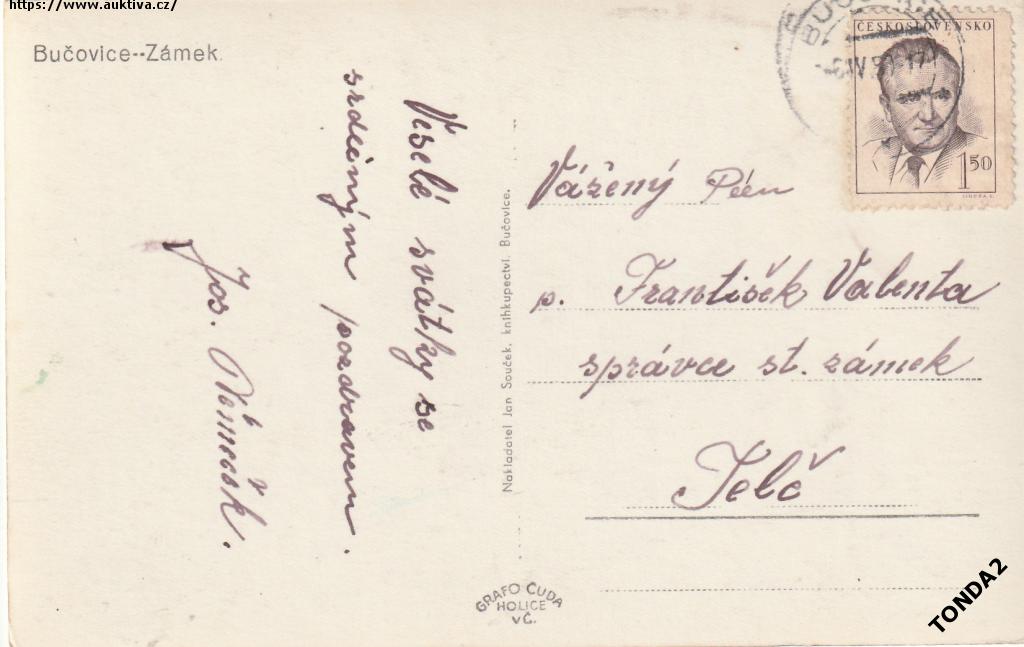 https://www.auktiva.cz/
Bučovice--Zámek.
Veselé svátky se
srdečným pozdravem.
Jos. Němeček.
Nakladatel Jan Souček, knihkupectví, Bučovice.
GRAFO ČUDA
HOLICE
VČ.
ČESKOSLOVENSKO
1 50
Vážený
p. František Valenta
správce st. zámek
Telč
TONDA2